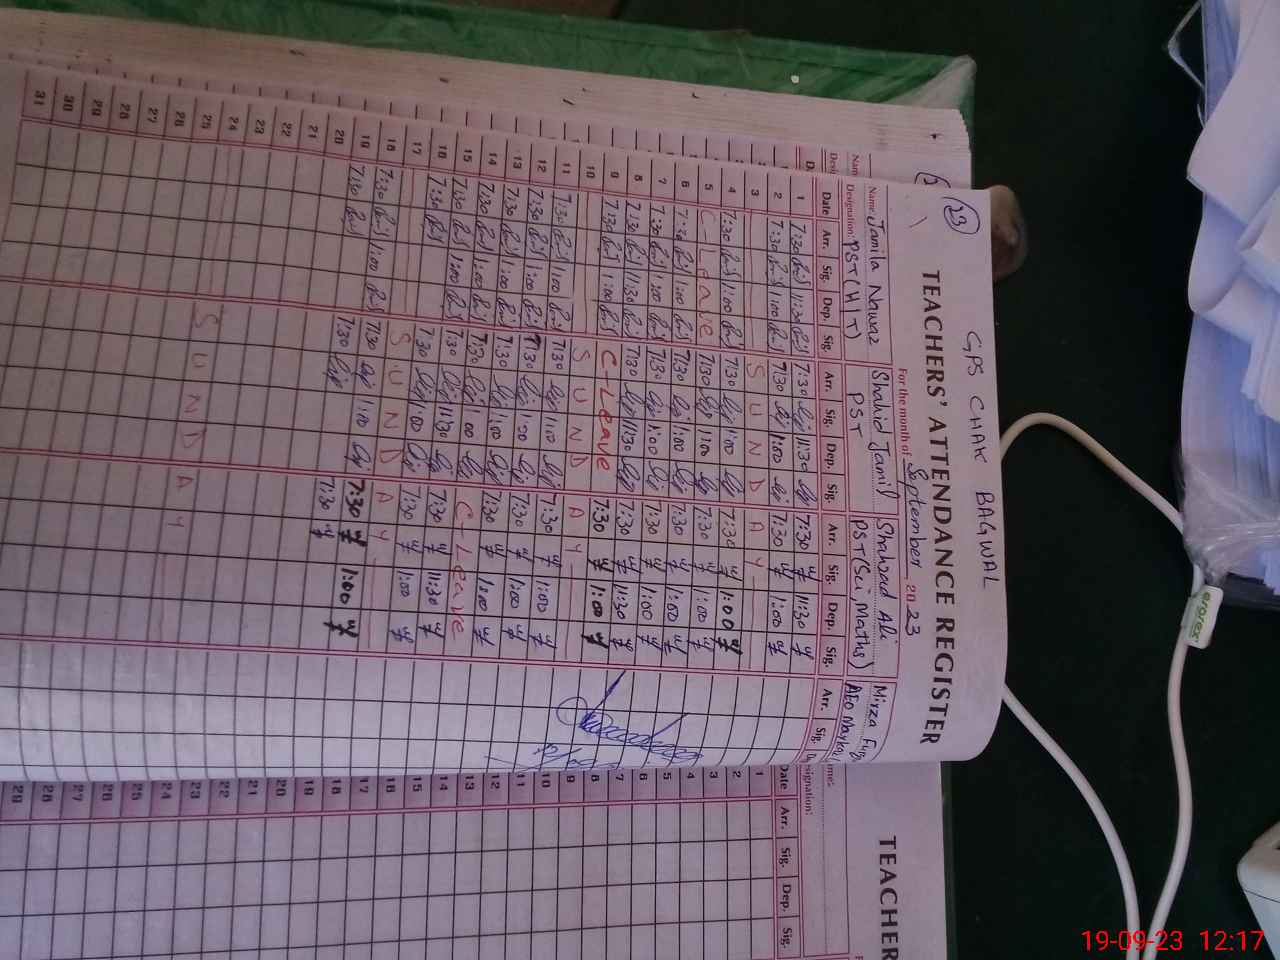 GPS CHAK BAGWAL
TEACHERS' ATTENDANCE REGISTER
For the month of September 2023
23
Name: Jamila Nawaz Shahid Jamil Shahzad Ali Mirza
Designation: PST (H/T) PST PST (Sci, Maths) AEO
Date Arr. Sig. Dep. Sig. Arr. Sig. Dep. Sig. Arr. Sig. Dep. Sig. Arr. Sig.
1 7:30 11:30 7:30 11:30 7:30 11:30
2 7:30 1:00 7:30 1:00 7:30 1:00
3 SUNDAY
4 7:30 1:00 7:30 1:00 7:30 1:00
5 C-Leave 7:30 1:00 7:30 1:00
6 7:30 1:00 7:30 1:00 7:30 1:00
7 7:30 1:00 7:30 1:00 7:30 1:00
8 7:30 11:30 7:30 11:30 7:30 11:30
9 7:30 1:00 C-Leave 7:30 1:00
10 SUNDAY
11 7:30 1:00 7:30 1:00 7:30 1:00
12 7:30 1:00 7:30 1:00 7:30 1:00
13 7:30 1:00 7:30 1:00 7:30 1:00
14 7:30 1:00 7:30 1:00 C-Leave
15 7:30 1:00 7:30 11:30 7:30 11:30
16 7:30 7:30 1:00 7:30 1:00
17 SUNDAY
18 7:30 1:00 7:30 1:00 7:30 1:00
19 7:30 7:30 7:30
20
21
22
23
24 SUNDAY
25
26
27
28
29
30
31
TEACHER
Designation:
Date Arr. Sig. Dep. Sig.
1
2
3
4
5
6
7
8
9
10
11
12
13
14
15
16
17
18
19
20
21
22
23
24
25
26
27
28
29
19-09-23 12:17